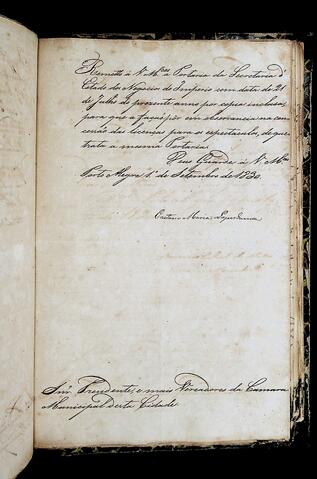 Remetto á V. M.ces a Portaria da Secretaria d'
Estado dos Negocios do Imperio com data de 21
de Julho do presente anno por copia inclusa,
para que a façaõ pôr em observancia na con-
cessaõ das licenças para os espectaculos, de que
trata a mesma Portaria.
Deus Guarde á V. M.ces
Porto Alegre 1º de Setembro de 1830.
Caetano Maria Lopes Gama
Snr.s Presidente, e mais Vereadores da Camara
Municipal desta Cidade